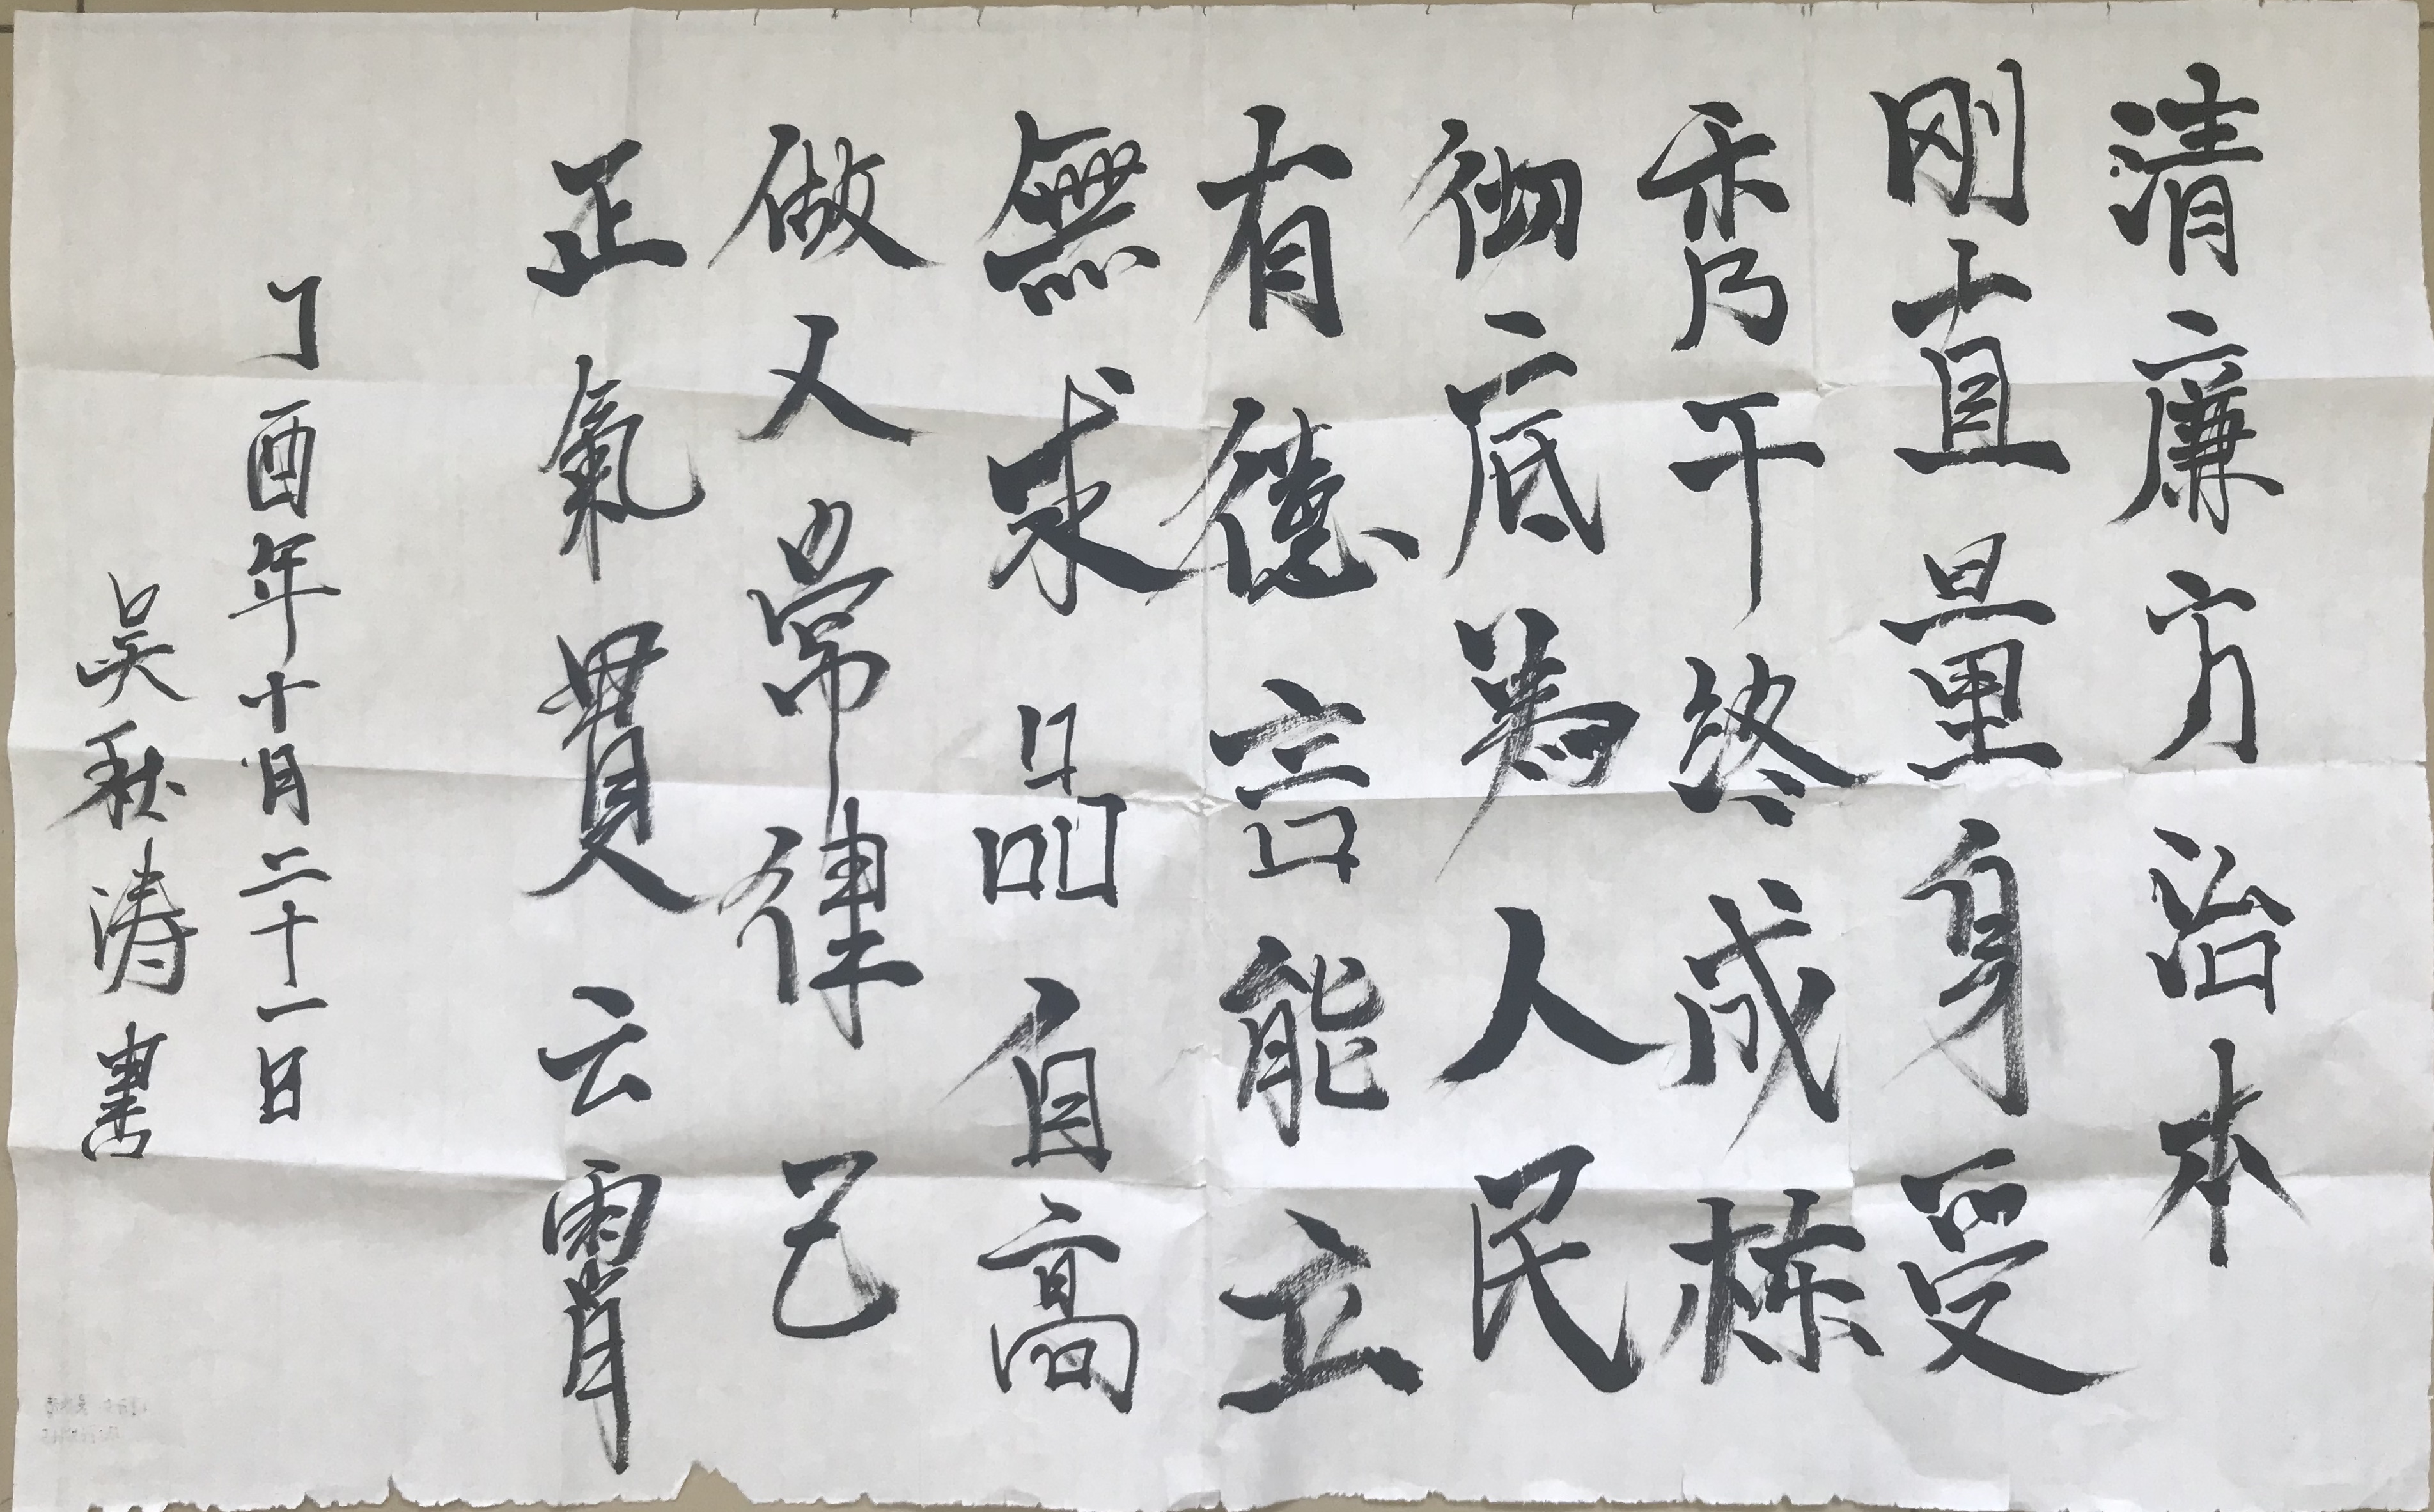 清廉方治本
刚直量身受
秀干终成栋
彻底為人民
有德言能立
無求品自高
做人常律己
正氣貫云霄
丁酉年十月二十一日
吴秋涛書